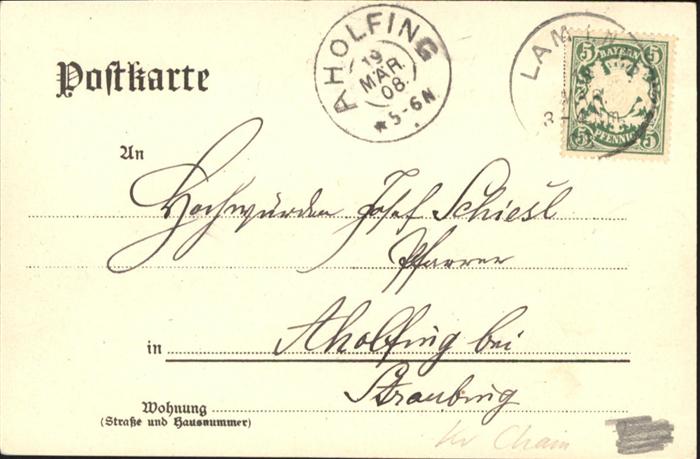 Postkarte
AHOLFING
19
MÄR.
08.
5-6N
LAM
5 BAYERN 5
5 PFENNIG 5
An
Hochwürden Josef Schiesl
Pfarrer
in Aholfing bei
Straubing
Wohnung
(Straße und Hausnummer)
Kr Cham